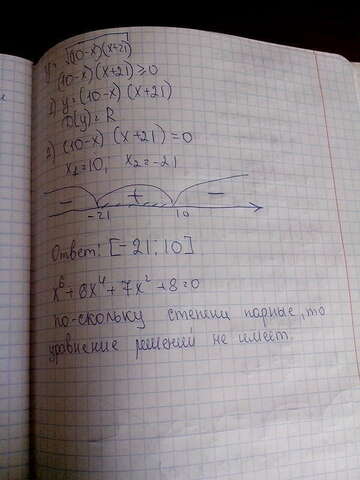 y = √(10-x)(x+21)
(10-x)(x+21) ≥ 0
1) y = (10-x) (x+21)
D(y) = R
2) (10-x) (x+21) = 0
x₁ = 10; x₂ = -21
- + -
-21 10
Ответ: [-21; 10]
x⁶ + 6x⁴ + 7x² + 8 = 0
по-скольку степени парные, то
уравнение решений не имеет.